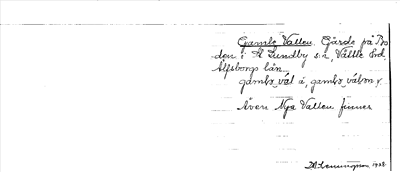 Gamle Vallen. Gärde på Bo
den i St Lundby sn, Vättle hd,
Älfsborgs län.
gambɤ val á,
Även Nya Vallen finnes
1928